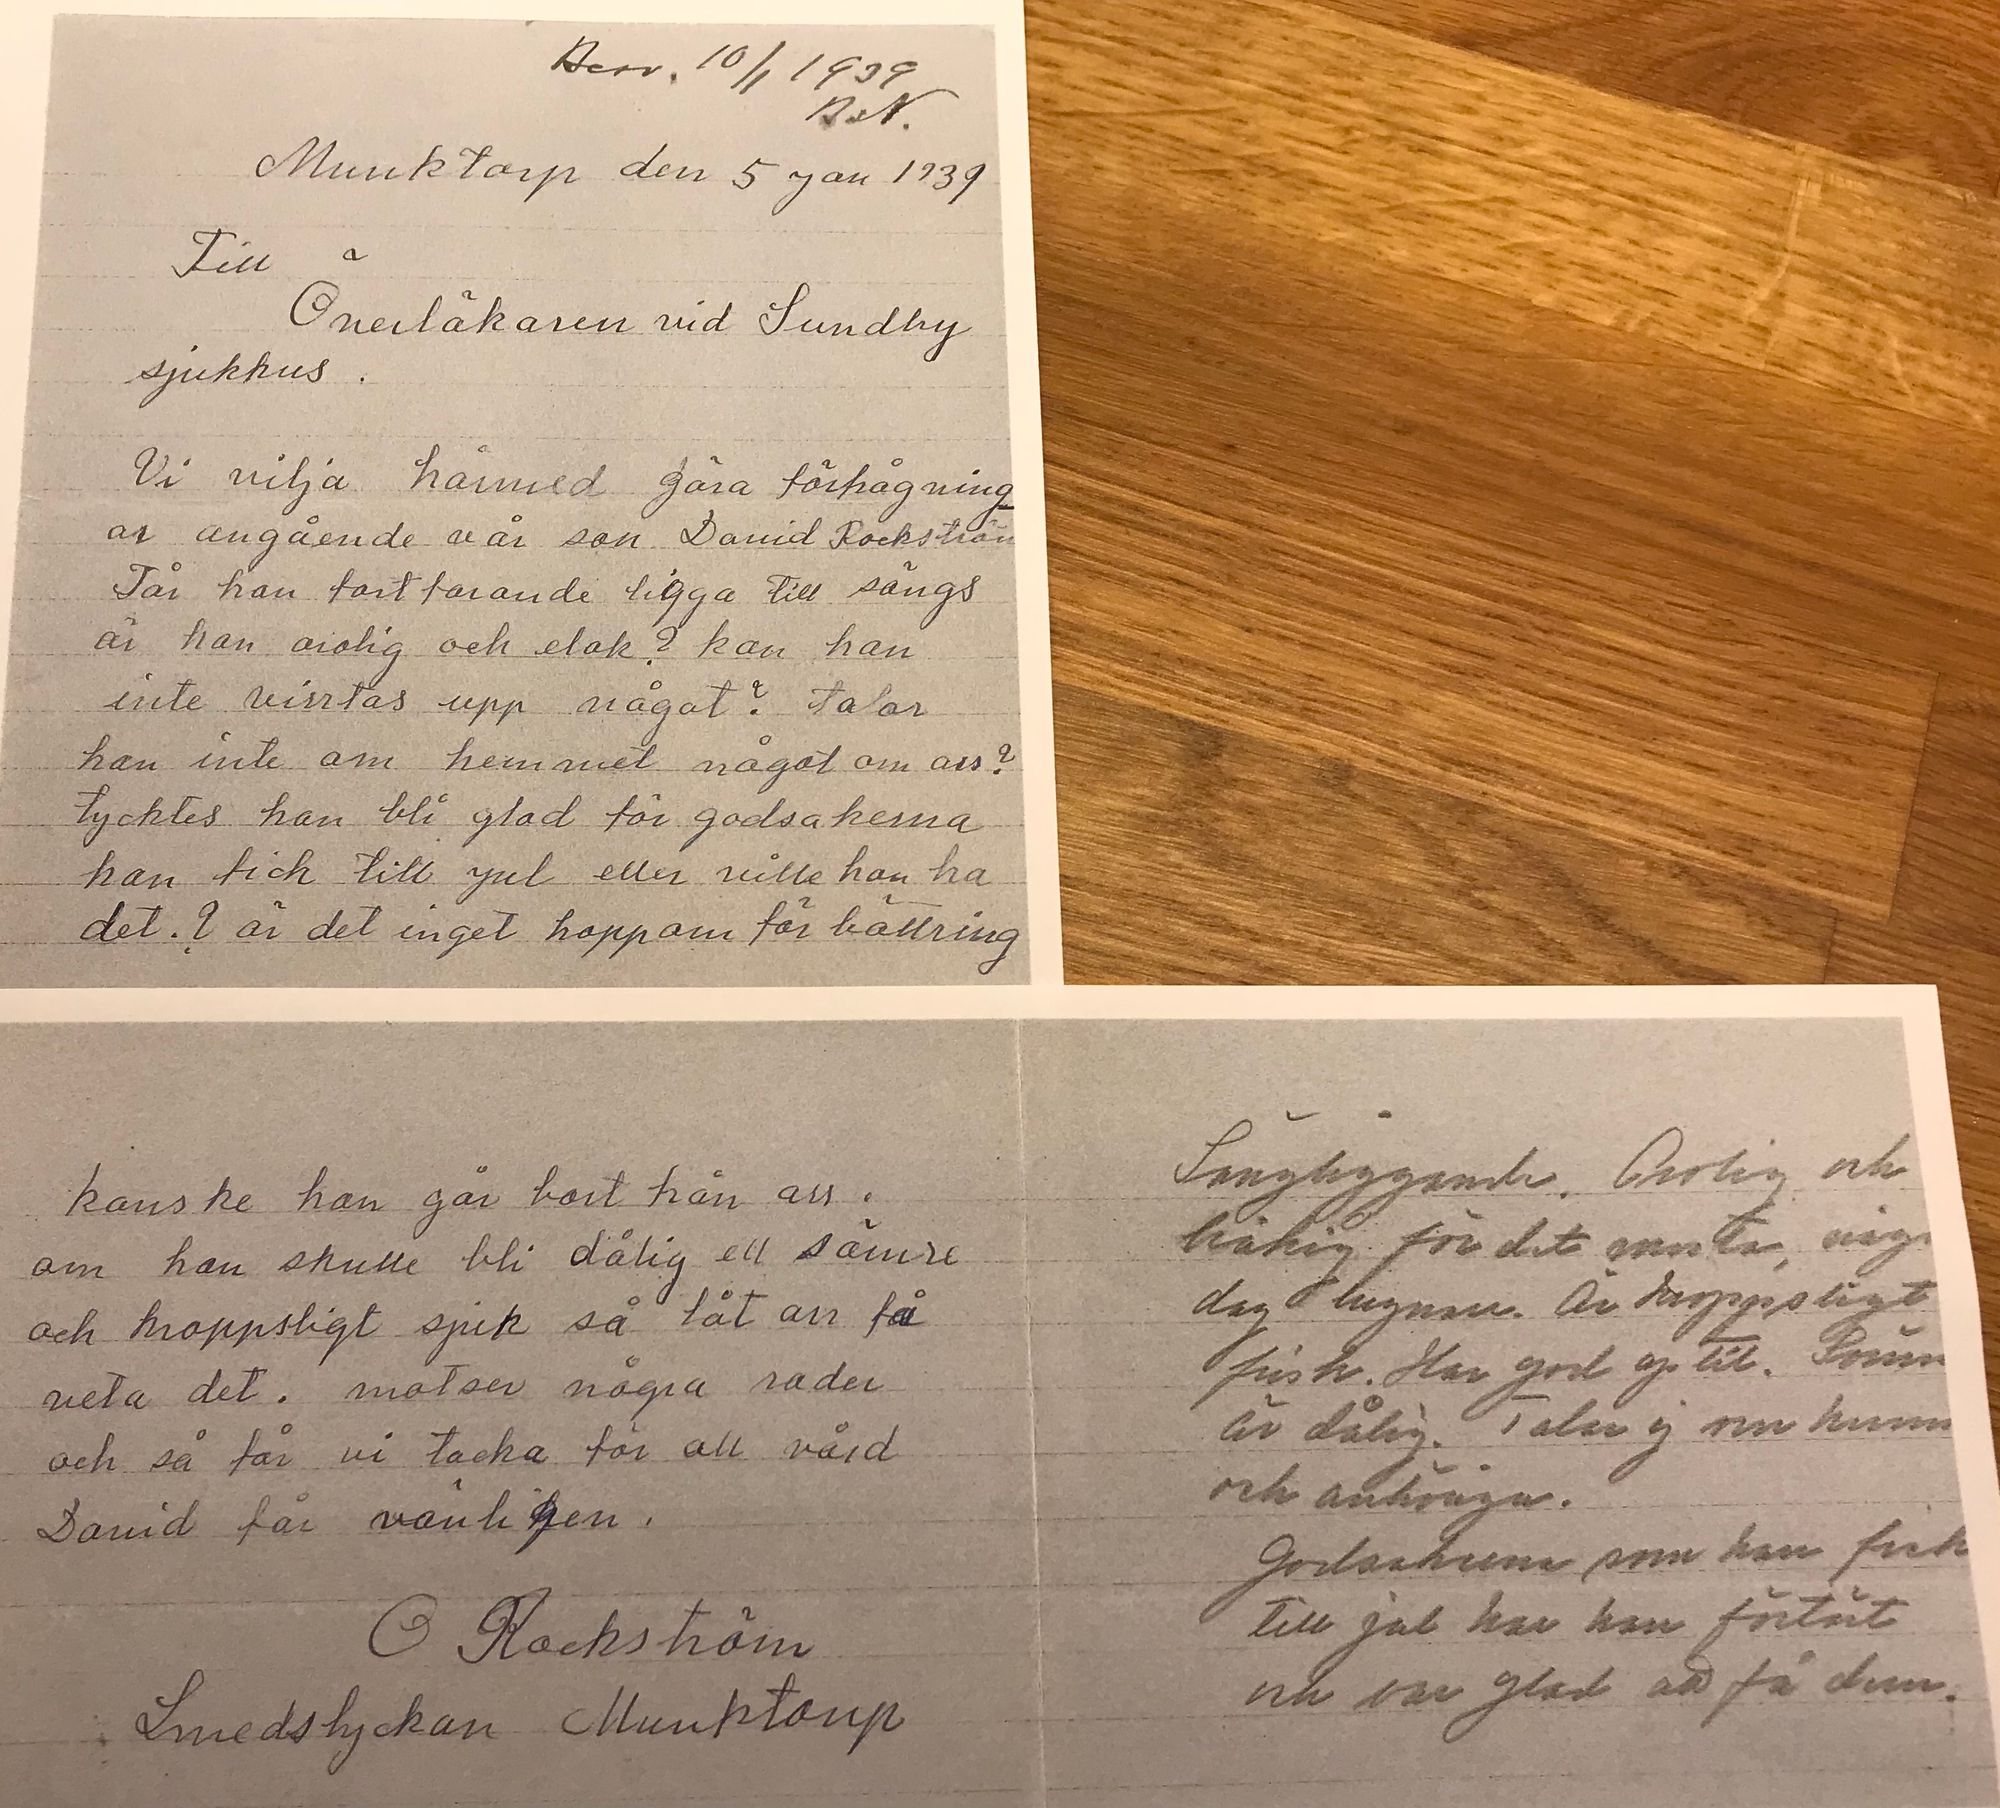 Besv. 10/1 1939
Munktorp den 5 jan 1939
Till
Överläkaren vid Sundby
sjukhus.
Vi vilja härmed göra förfrågning
ar angående vår son David Rockström
Får han fortfarande ligga till sängs
är han orolig och elak? kan han
inte vistas upp något? talar
han inte om hemmet något om oss?
tycktes han bli glad för godsakerna
han fick till jul eller ville han ha
det.? är det inget hopp om förbättring
kanske han går bort från oss.
om han skulle bli dålig ell sämre
och kroppsligt sjuk så låt oss få
veta det. motser några rader
och så får vi tacka för all vård
David får vänligen.
O Rockström
Smedslyckan Munktorp
Sängliggande. Orolig och
bråkig för det mesta,
dag lugnare. Är kroppsligt
frisk. Har god aptit. Sömn
är dålig. Talar ej om hemm
och anhöriga.
Godsakerna som han fick
till jul har han förtärt
och var glad att få dem.